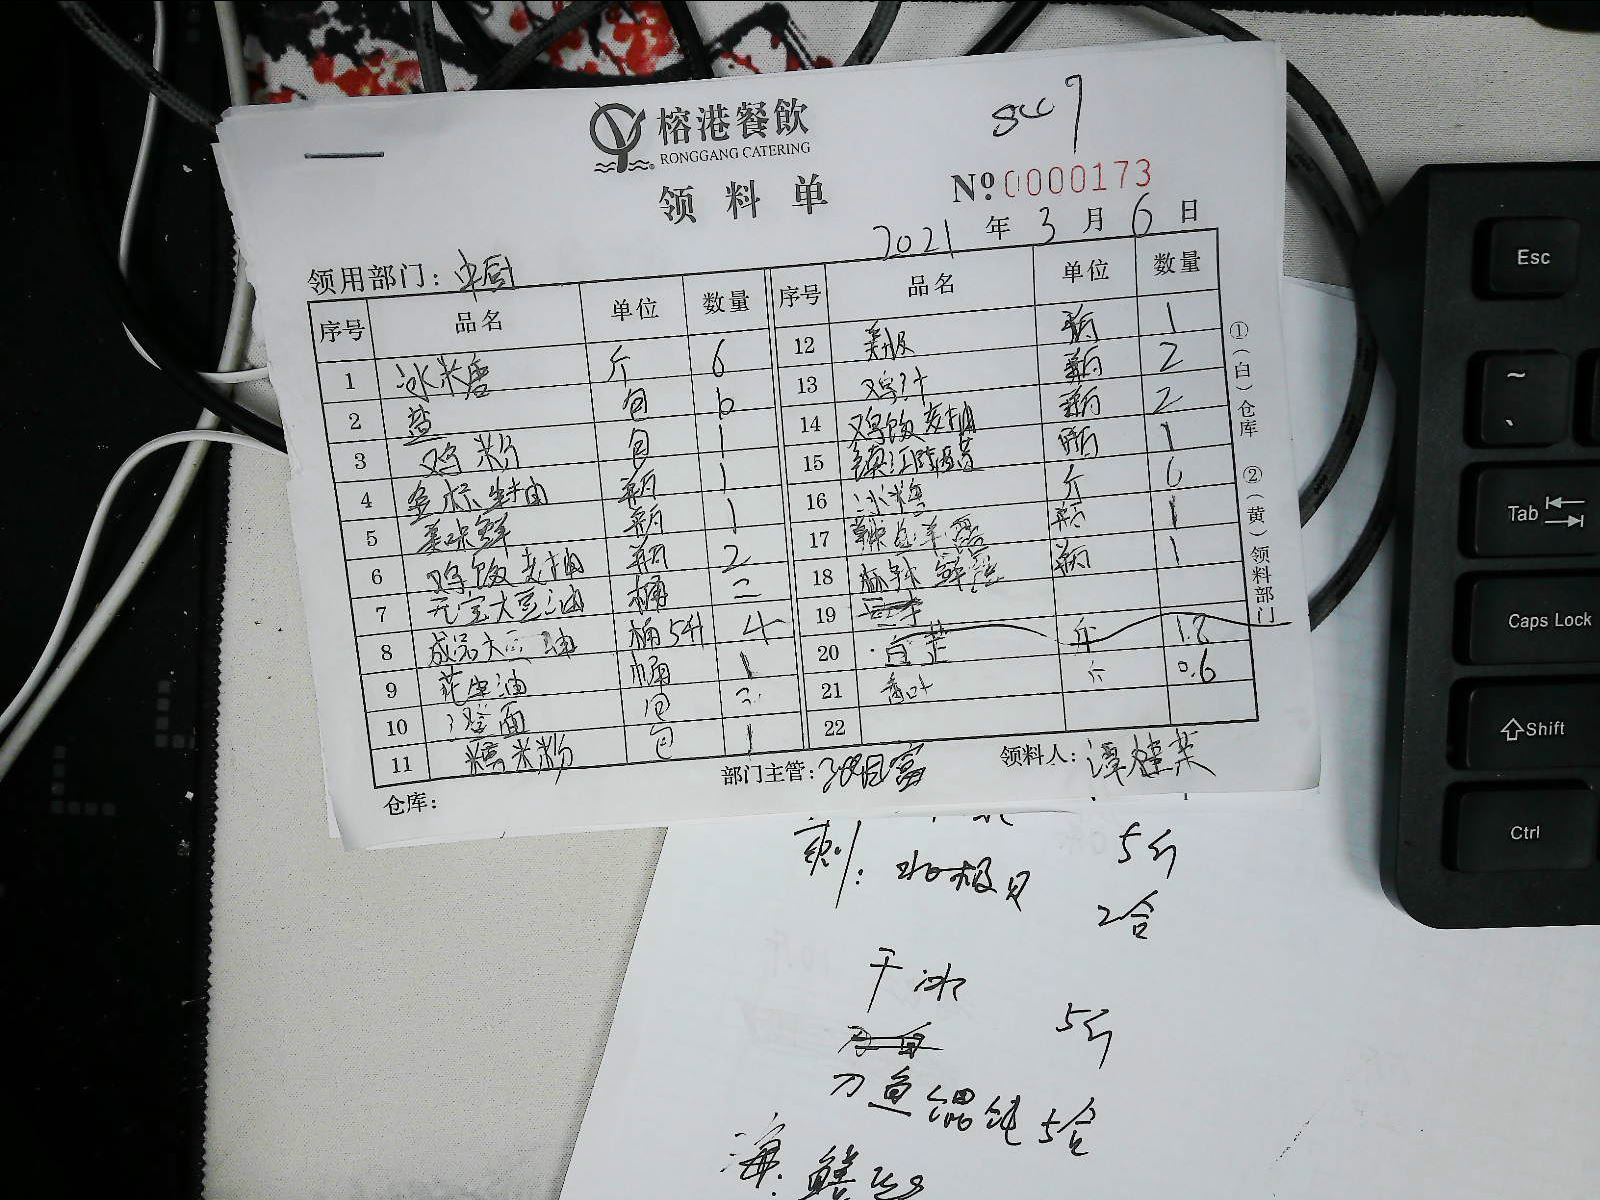 榕港餐飲
RONGGANG CATERING
领料单
№ 0000173
2021 年 3 月 6 日
领用部门：中厨
序号 品名 单位 数量
1 冰米唐 斤 6
2 盐 包 6
3 鸡粉 包 1
4 金标生抽 瓶 1
5 美味鲜 瓶 1
6 鸡饭老抽 瓶 2
7 元宝大豆油 桶 二
8 成品大豆油 桶 5升 4
9 花生油 桶 1
10 澄面 包
11 糯米粉 包 1
序号 品名 单位 数量
12 美极 瓶 1
13 鸡汁 瓶 2
14 鸡饭老抽 瓶 2
15 镇江陈醋 瓶 1
16 冰梅 斤 6
17 辣 瓶 1
18 辣鲜露 瓶 1
19
20 白芷 斤 1.2
21 香叶 斤 0.6
22
①（白）仓库 ②（黄）领料部门
仓库：
部门主管：
领料人：谭
刺：北极贝 5斤
2合
干冰
5斤
刀鱼馄饨 5合
海鲜
Esc
~
Tab
Caps Lock
Shift
Ctrl